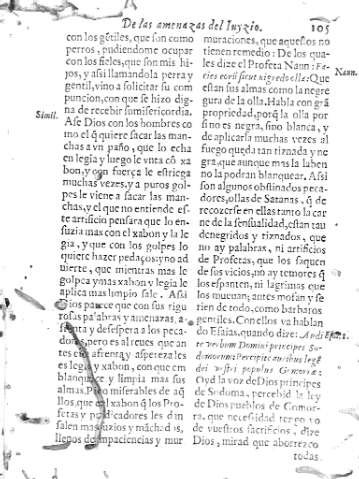 De las amenazas del Iuyzio.
105
con los gẽtiles, que son como
perros, pudiendome ocupar
con los fieles, que son mis hi-
jos, y assi llamandola perra y
gentil, vino a solicitar su com
puncion, con que se hizo dig-
na de recebir su misericordia.
Simil.
Asse Dios con los hombres co
mo el q̃ quiere sacar las man-
chas a vn paño, que lo echa
en legia y luego le vnta cõ xa
bon, y con fuerça le estriega
muchas vezes, y a puros gol-
pes le viene a sacar las man-
chas, y el que no entiende es-
te artificio pensara que lo en-
suzia mas con el xabon y la le
gia, y que con los golpes lo
quiere hazer pedaços: y no ad
uierte, que mientras mas le
golpea y mas xabon y legia le
aplica mas limpio sale. Assi
Dios parece que con sus rigu
rosas palabras y amenazas, a-
frenta y desespera a los peca-
dores, pero es al reues que an
tes essa afrenta y aspereza les
es legia y xabon, con que em
blanquece y limpia mas sus
almas. Pero miserables de aq̃-
llos, que al xabon q̃ los Pro-
fetas y predicadores les dan
salen mas suzios y mãchados,
llenos de impaciencias y mur
muraciones, que aquestos no
tienen remedio: De los qua-
les dize el Profeta Naun: Fa-
Naun.
cies eorũ sicut nigredo ollæ: Que
estan sus almas como la negre
gura de la olla. Habla con grã
propriedad, porq̃ la olla por
si no es negra, sino blanca, y
de aplicarla muchas vezes al
fuego queda tan tiznada y ne
gra, que aunque mas la laben
no la podran blanquear. Assi
son algunos obstinados peca-
dores, ollas de Satanas, q̃ de
recozerse en ellas tanto la car
ne de la sensualidad, estan tan
denegridos y tiznados, que
no ay palabras, ni artificios
de Profetas, que los saquen
de sus vicios, no ay temores q̃
los espanten, ni lagrimas que
los mueuan; antes mofan y se
rien de todo, como barbaros
gentiles. Con ellos va hablan
do Esaias, quando dize: Audi
te verbum Domini principes So-
domorum: Percipite auribus legẽ
dei vestri populus Gomorræ:
Oyd la voz de Dios principes
de Sodoma, percebid la ley
de Dios pueblos de Gomor-
ra, que necesidad tengo yo
de vuestros sacrificios, dize
Dios, mirad que aborrezco
todas